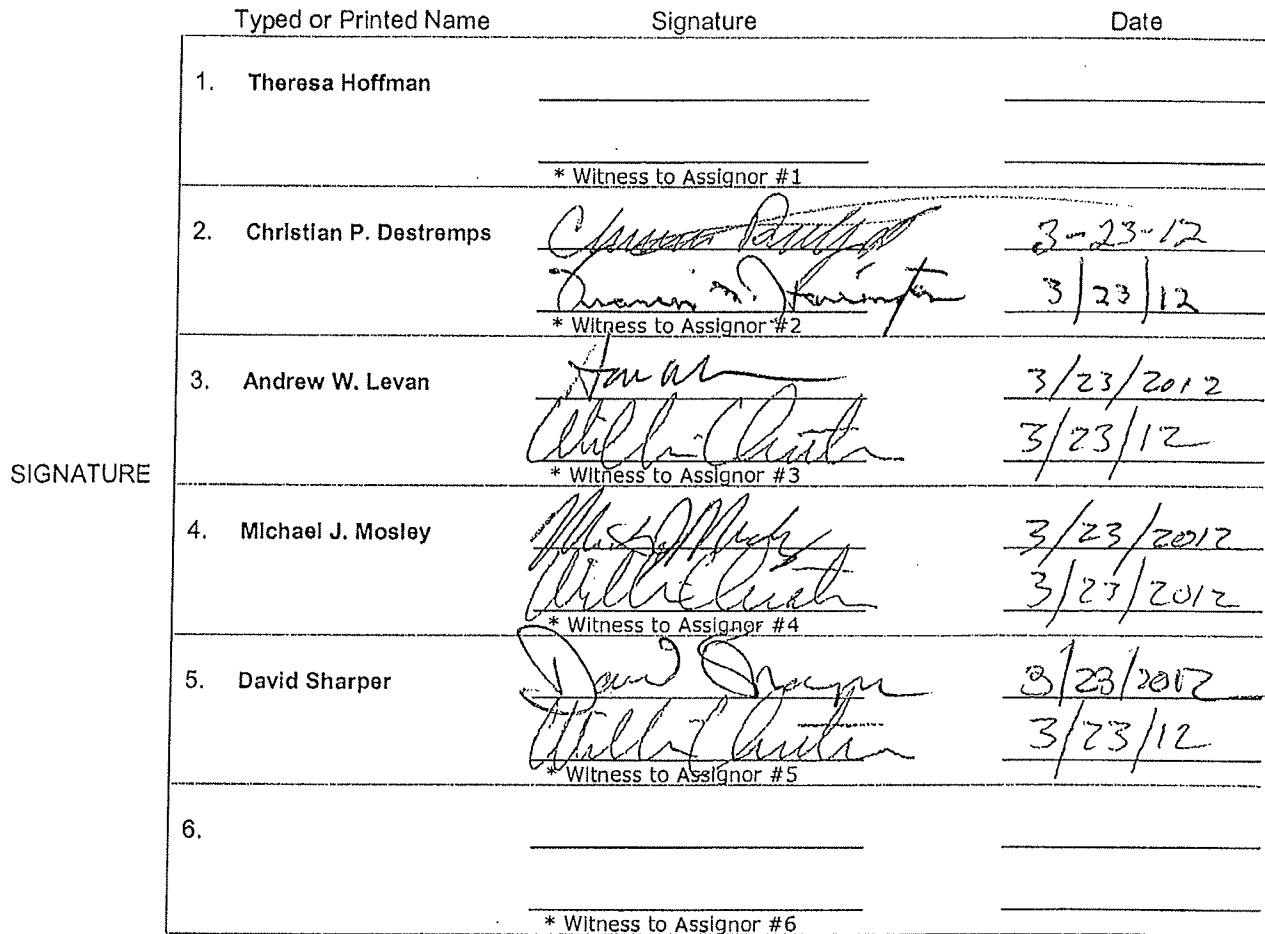 Typed or Printed Name Signature Date
1. Theresa Hoffman
* Witness to Assignor #1
2. Christian P. Destremps 3-23-12
3/23/12
* Witness to Assignor #2
3. Andrew W. Levan 3/23/2012
3/23/12
* Witness to Assignor #3
SIGNATURE
4. Michael J. Mosley 3/23/2012
3/23/2012
* Witness to Assignor #4
5. David Sharper David Sharper 3/23/2012
3/23/12
* Witness to Assignor #5
6.
* Witness to Assignor #6